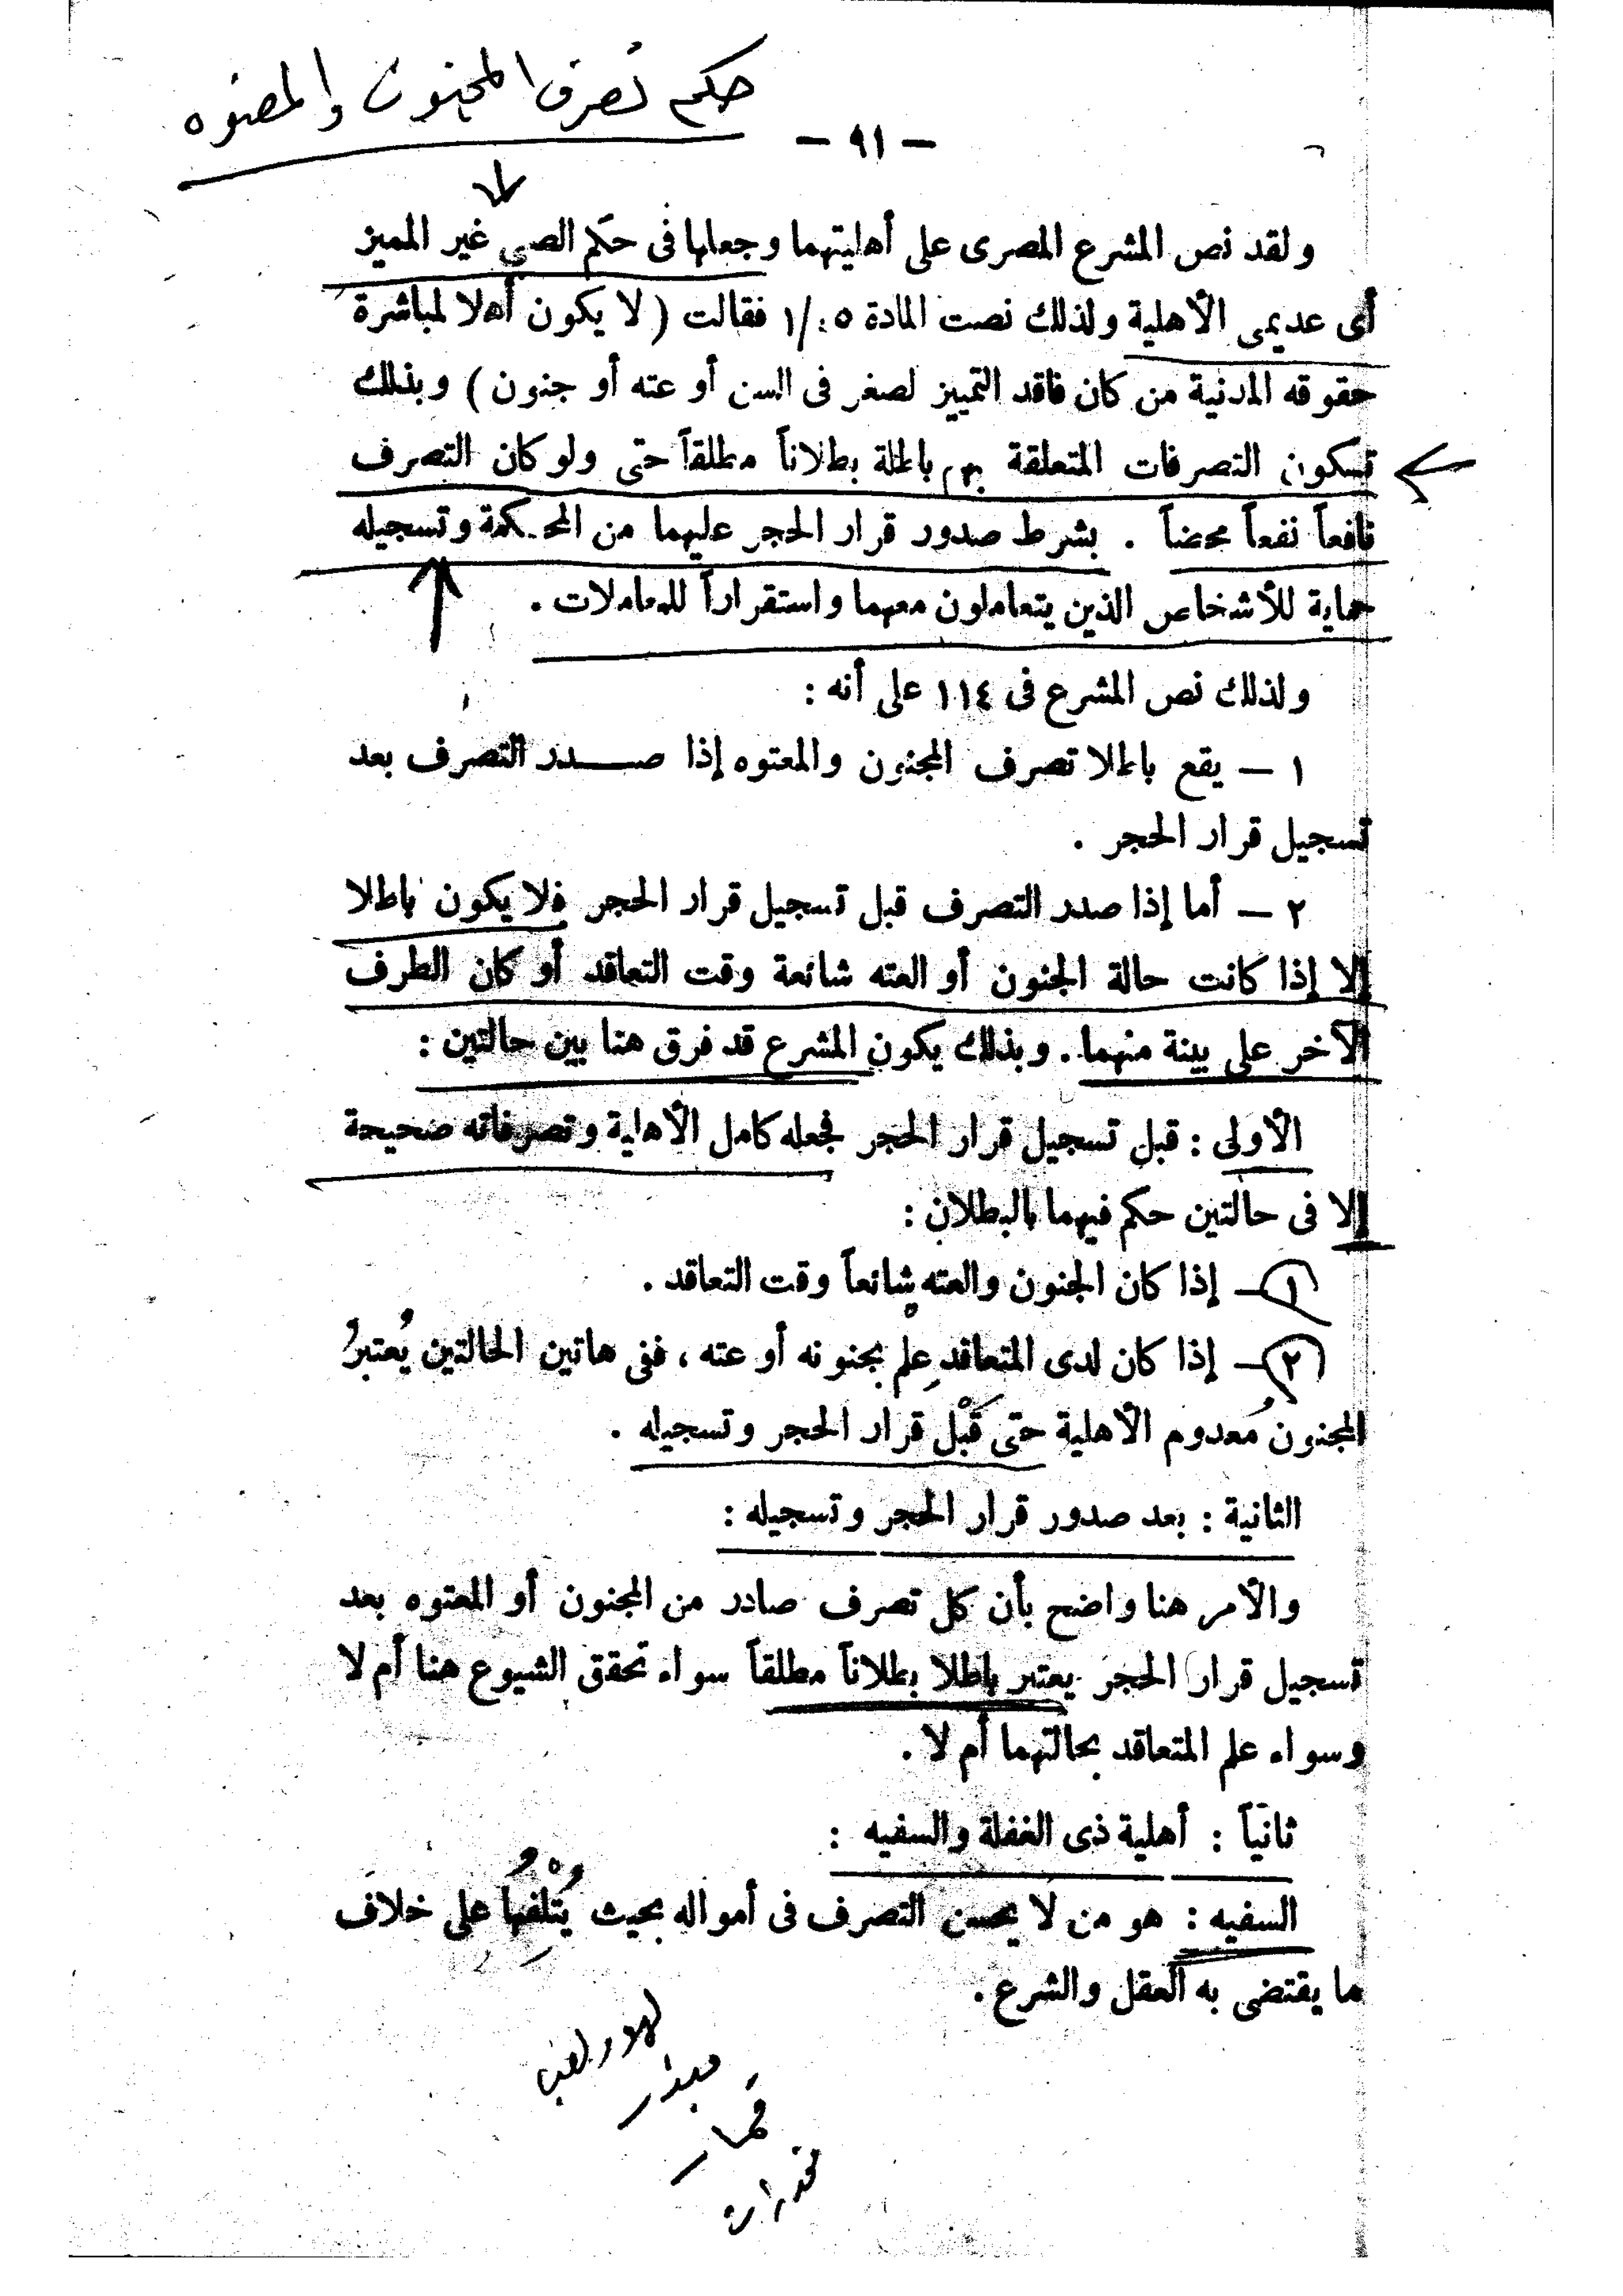 حكم تصرف المجنون والمعتوه
— ٩١ —
ولقد نص المشرع المصرى على أهليتهما وجعلها فى حكم الصبى غير المميز
أى عديمى الأهلية ولذلك نصت المادة ١/٤٥ فقالت ( لا يكون أهلا لمباشرة
حقوقه المدنية من كان فاقد التمييز لصغر فى السن أو عته أو جنون ) وبذلك
تكون التصرفات المتعلقة بهم باطلة بطلاناً مطلقاً حتى ولو كان التصرف
نافعاً نفعاً محضاً . بشرط صدور قرار الحجر عليهما من المحكمة وتسجيله
حماية للأشخاص الذين يتعاملون معهما واستقراراً للمعاملات .
ولذلك نص المشرع فى ١١٤ على أنه :
١ — يقع باطلا تصرف المجنون والمعتوه إذا صدر التصرف بعد
تسجيل قرار الحجر .
٢ — أما إذا صدر التصرف قبل تسجيل قرار الحجر فلا يكون باطلا
إلا إذا كانت حالة الجنون أو العته شائعة وقت التعاقد أو كان الطرف
الآخر على بينة منهما . وبذلك يكون المشرع قد فرق هنا بين حالتين :
الأولى : قبل تسجيل قرار الحجر فجعله كامل الأهلية وتصرفاته صحيحة
إلا فى حالتين حكم فيهما بالبطلان :
١ — إذا كان الجنون والعته شائعاً وقت التعاقد .
٢ — إذا كان لدى المتعاقد علم بجنونه أو عته ، ففى هاتين الحالتين يُعتبرُ
المجنون مَعدوم الأهلية حتى قَبْل قرار الحجر وتسجيله .
الثانية : بعد صدور قرار الحجر وتسجيله :
والأمر هنا واضح بأن كل تصرف صادر من المجنون أو المعتوه بعد
تسجيل قرار الحجر يعتبر باطلا بطلاناً مطلقاً سواء تحقق الشيوع هنا أم لا
وسواء علم المتعاقد بحالتهما أم لا .
ثانياً : أهلية ذى الغفلة والسفيه :
السفيه : هو من لا يحسن التصرف فى أمواله بحيث يُتْلفهُا على خلاف
ما يقتضى به العقل والشرع .
مبذر
قمار